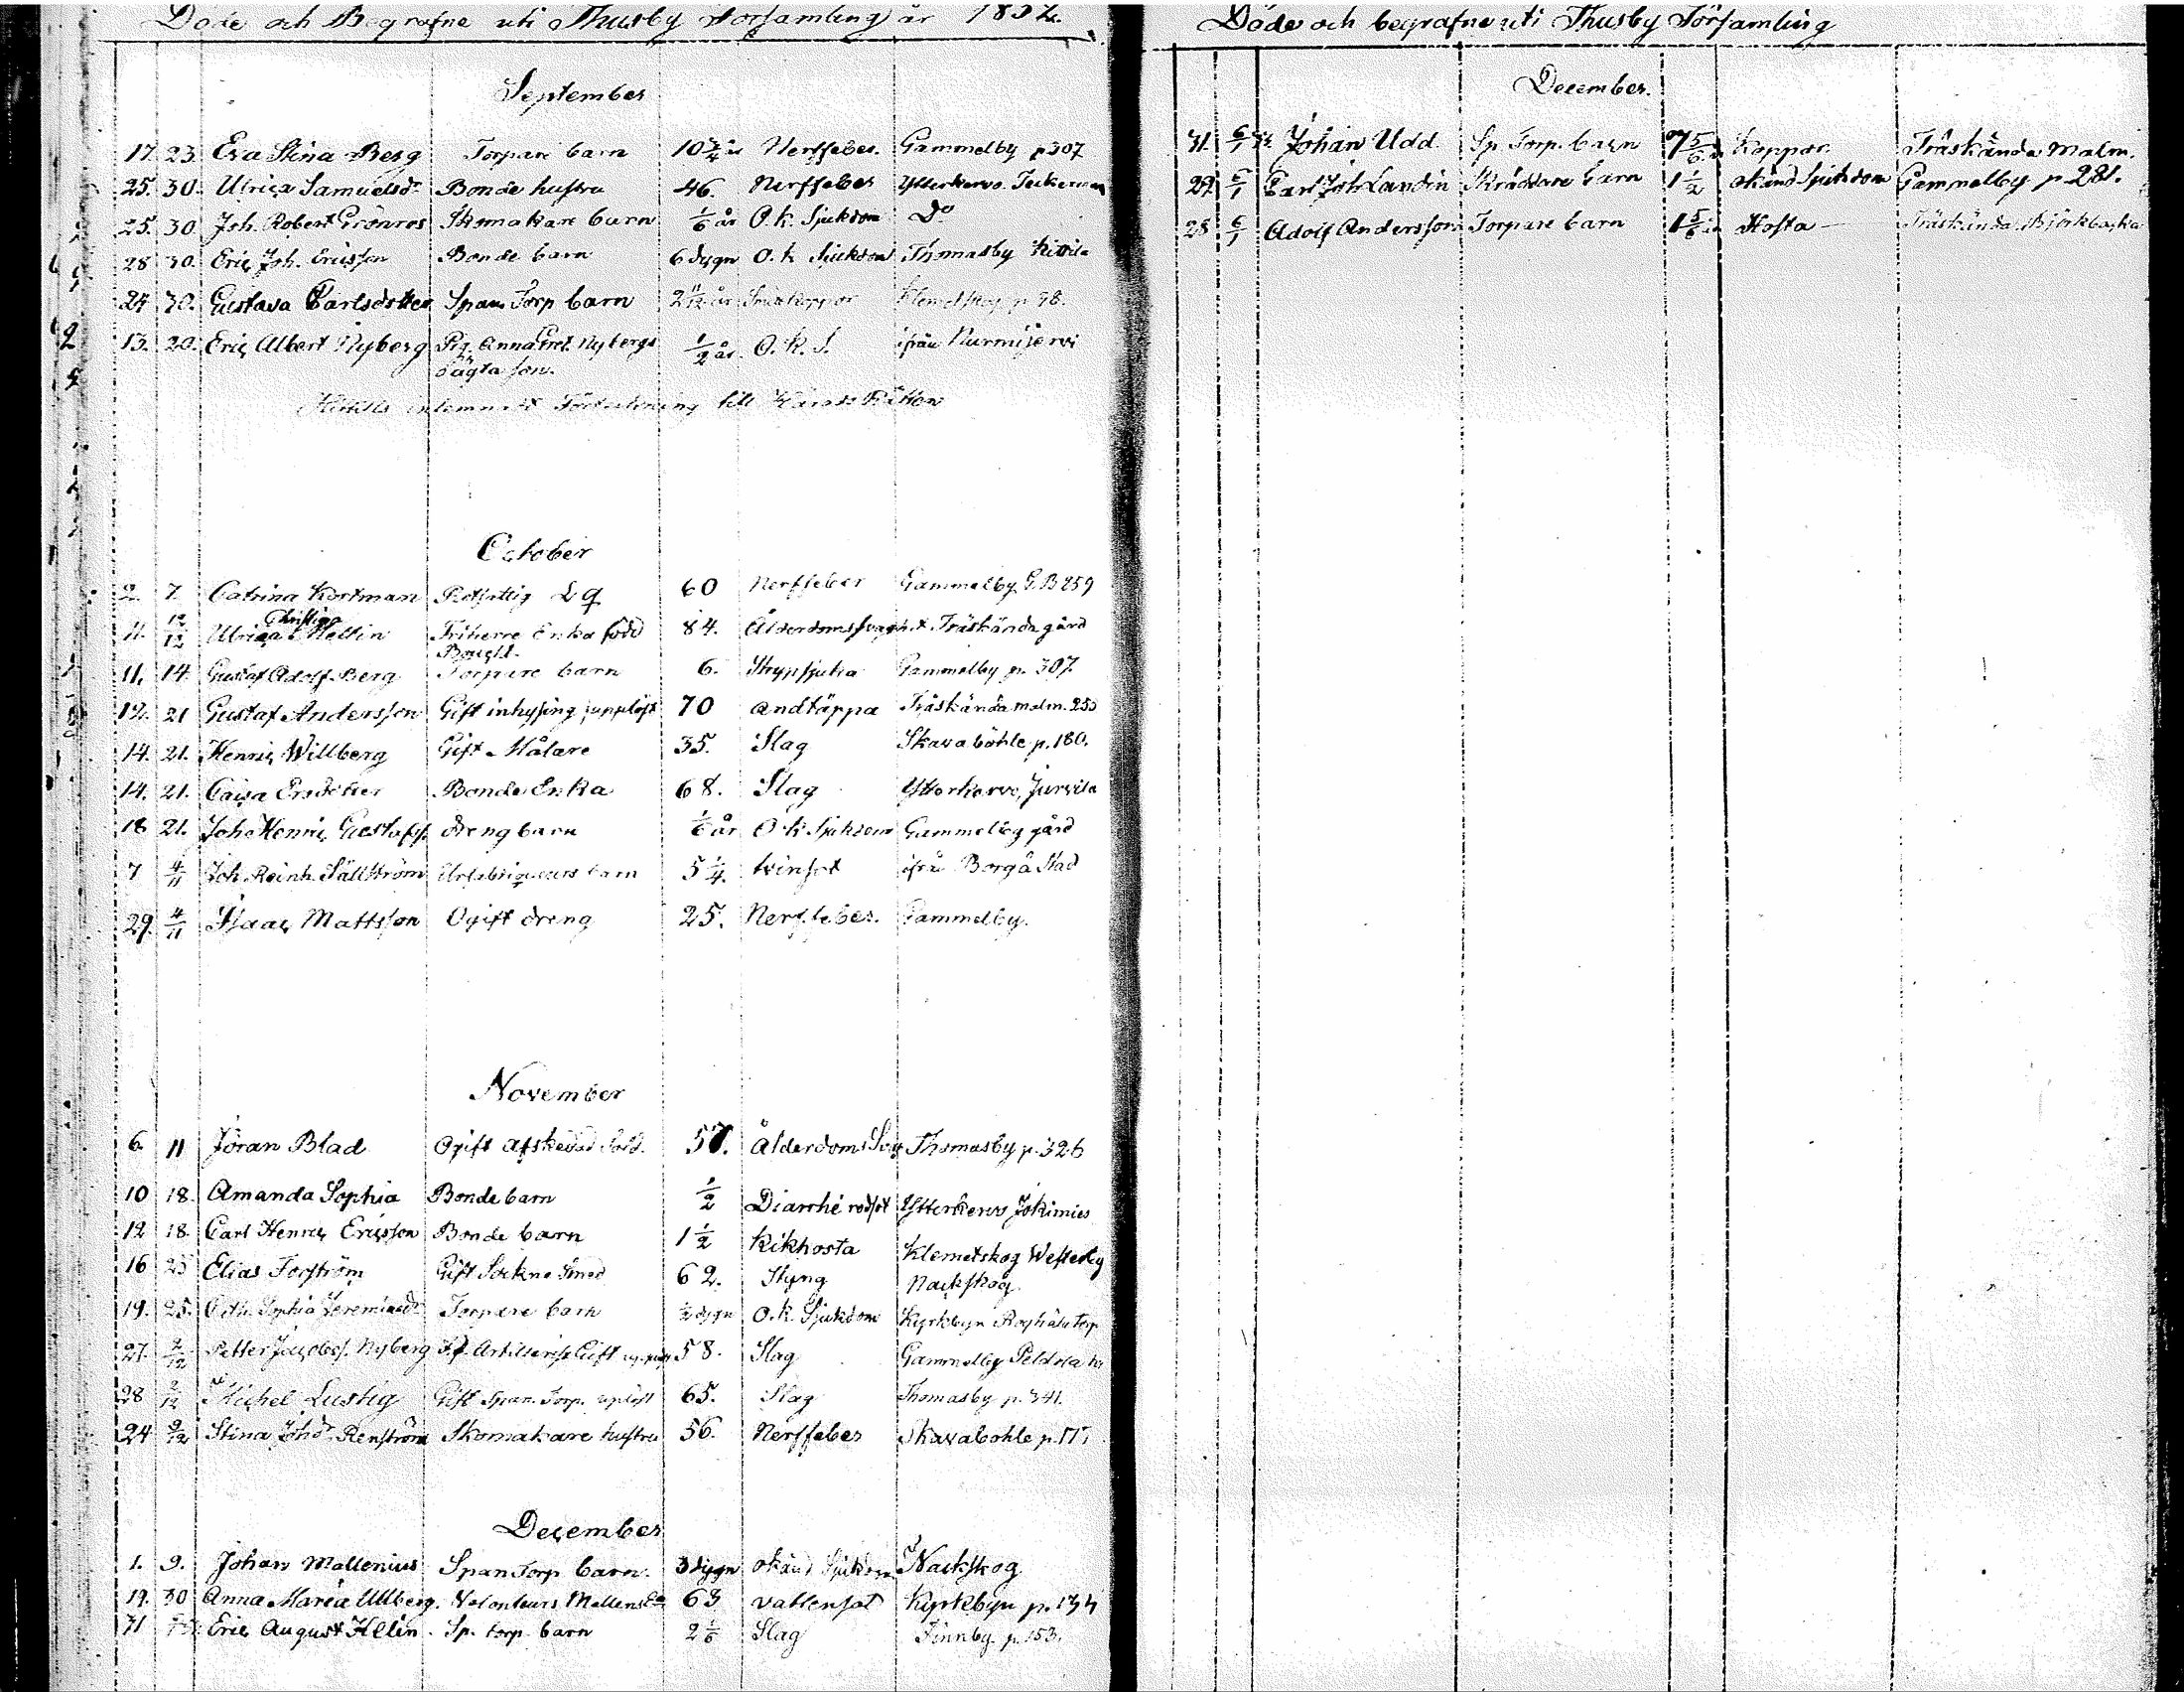 Döde och Begrafne uti Thusby Församling år 1832.
September
17. 23. Eva Stina Berg Torpare barn 10 3/4 år Nerffeber. Gammelby p 307
25. 30. Ulrica Samuelsdr Bonde hustru 46. Nerffeber Ytterkervo. Teckerman
25. 30 Joh. Robert Grönros Skomakare barn 1/6 år O.k. Sjukdom Do
28 30. Eric Joh. Ericsson Bonde barn 6 dygn O.k Sjukdom Thomasby
24 30. Gustava Carlsdotter Span Torp barn 2 år Småkoppor Klemetskog p 98.
13. 20. Eric Albert Nyberg Pig. Anna Gret. Nybergs 1/2 år. O.k.S. ifrån Nurmijervi
oägta son.
Hittills inlemnadt Förteckning till Härads Rätten
October
2. 7. Catrina Kortman Rotfattig 60 Nerffeber Gammelby G.B 259
Christina
11. 12/12 Ulrica Mellin Friherre Enka född 84. Ålderdomssvagh.t Träskända gård
11. 14. Gustaf Adolf Berg Torpare barn 6. Strypsjuka Gammelby p. 307.
12. 21 Gustaf Andersson Gift inhysing upplöst 70 andtäppa Träskända malm. 25
14. 21. Henric Willberg Gift Målare 35. Slag Skavaböhle p. 180.
14. 21. Caisa Ersdotter Bonde Enka 68. Slag Ytterkervo, Jurvila
18 21. Joh. Henric Gustafss. dreng barn 1/6 år O.k Sjukdom Gammelby gård
7 4/11 Joh. Reinh. Sällström Urfabriqueurs barn 5 1/4. tvinsot ifrån Borgå Stad
29. 4/11 Isaac Mattsson Ogift dreng 25. Nerffeber. Gammelby.
November
6. 11 Jöran Blad Ogift afskedad Sold. 57. ålderdoms Svag Thomasby p. 326
10 18. Amanda Sophia Bonde barn 1/2 Diarrhé rodsot Ytterkervo Jokimies
12 18. Carl Henric Ericsson Bonde barn 1 1/2 Kikhosta Klemetskog Westerby
16 25 Elias Forström Gift Sockne Smed 62. Styng Nackskog
19. 25. Cath. Sophia Jeremiaedr Torpare barn 1/2 dygn O.k. Sjukdom Kyrkbyn Torp
27. 2/12 Petter Jacobss. Nyberg Artillerist Gift 58. Slag Gammelby
28 2/12 Michel Lustig Gift Span. Torp. uplöst 65. Slag Thomasby p. 341.
24 9/12 Stina Johdr Renström Skomakare hustru 56. Nerffeber Skavabohle p. 177
December
1. 9. Johan Mallenius Span Torp barn. 3 dygn okänd Sjukdom Nackskog
19. 30 Anna Maria Ullberg. Volonteurs Mellens Ea 63 vattensot Kyrkbyn p. 134
31 Eric August Helin. Sp. torp. barn 2 1/6 Slag Finnby. p. 153.
Döde och begrafne uti Thusby Församling
December.
31. 6/1 Johan Udd. Sp. Torp. barn 7 5/6 Koppor Träskända Malm.
29. 6/1 Carl Joh Landin Skräddare barn 1 1/2 okänd Sjukdom Gammelby p 281.
28 6/1 Adolf Andersson Torpare barn 1 5/6 Hosta Träskända Björkbacka